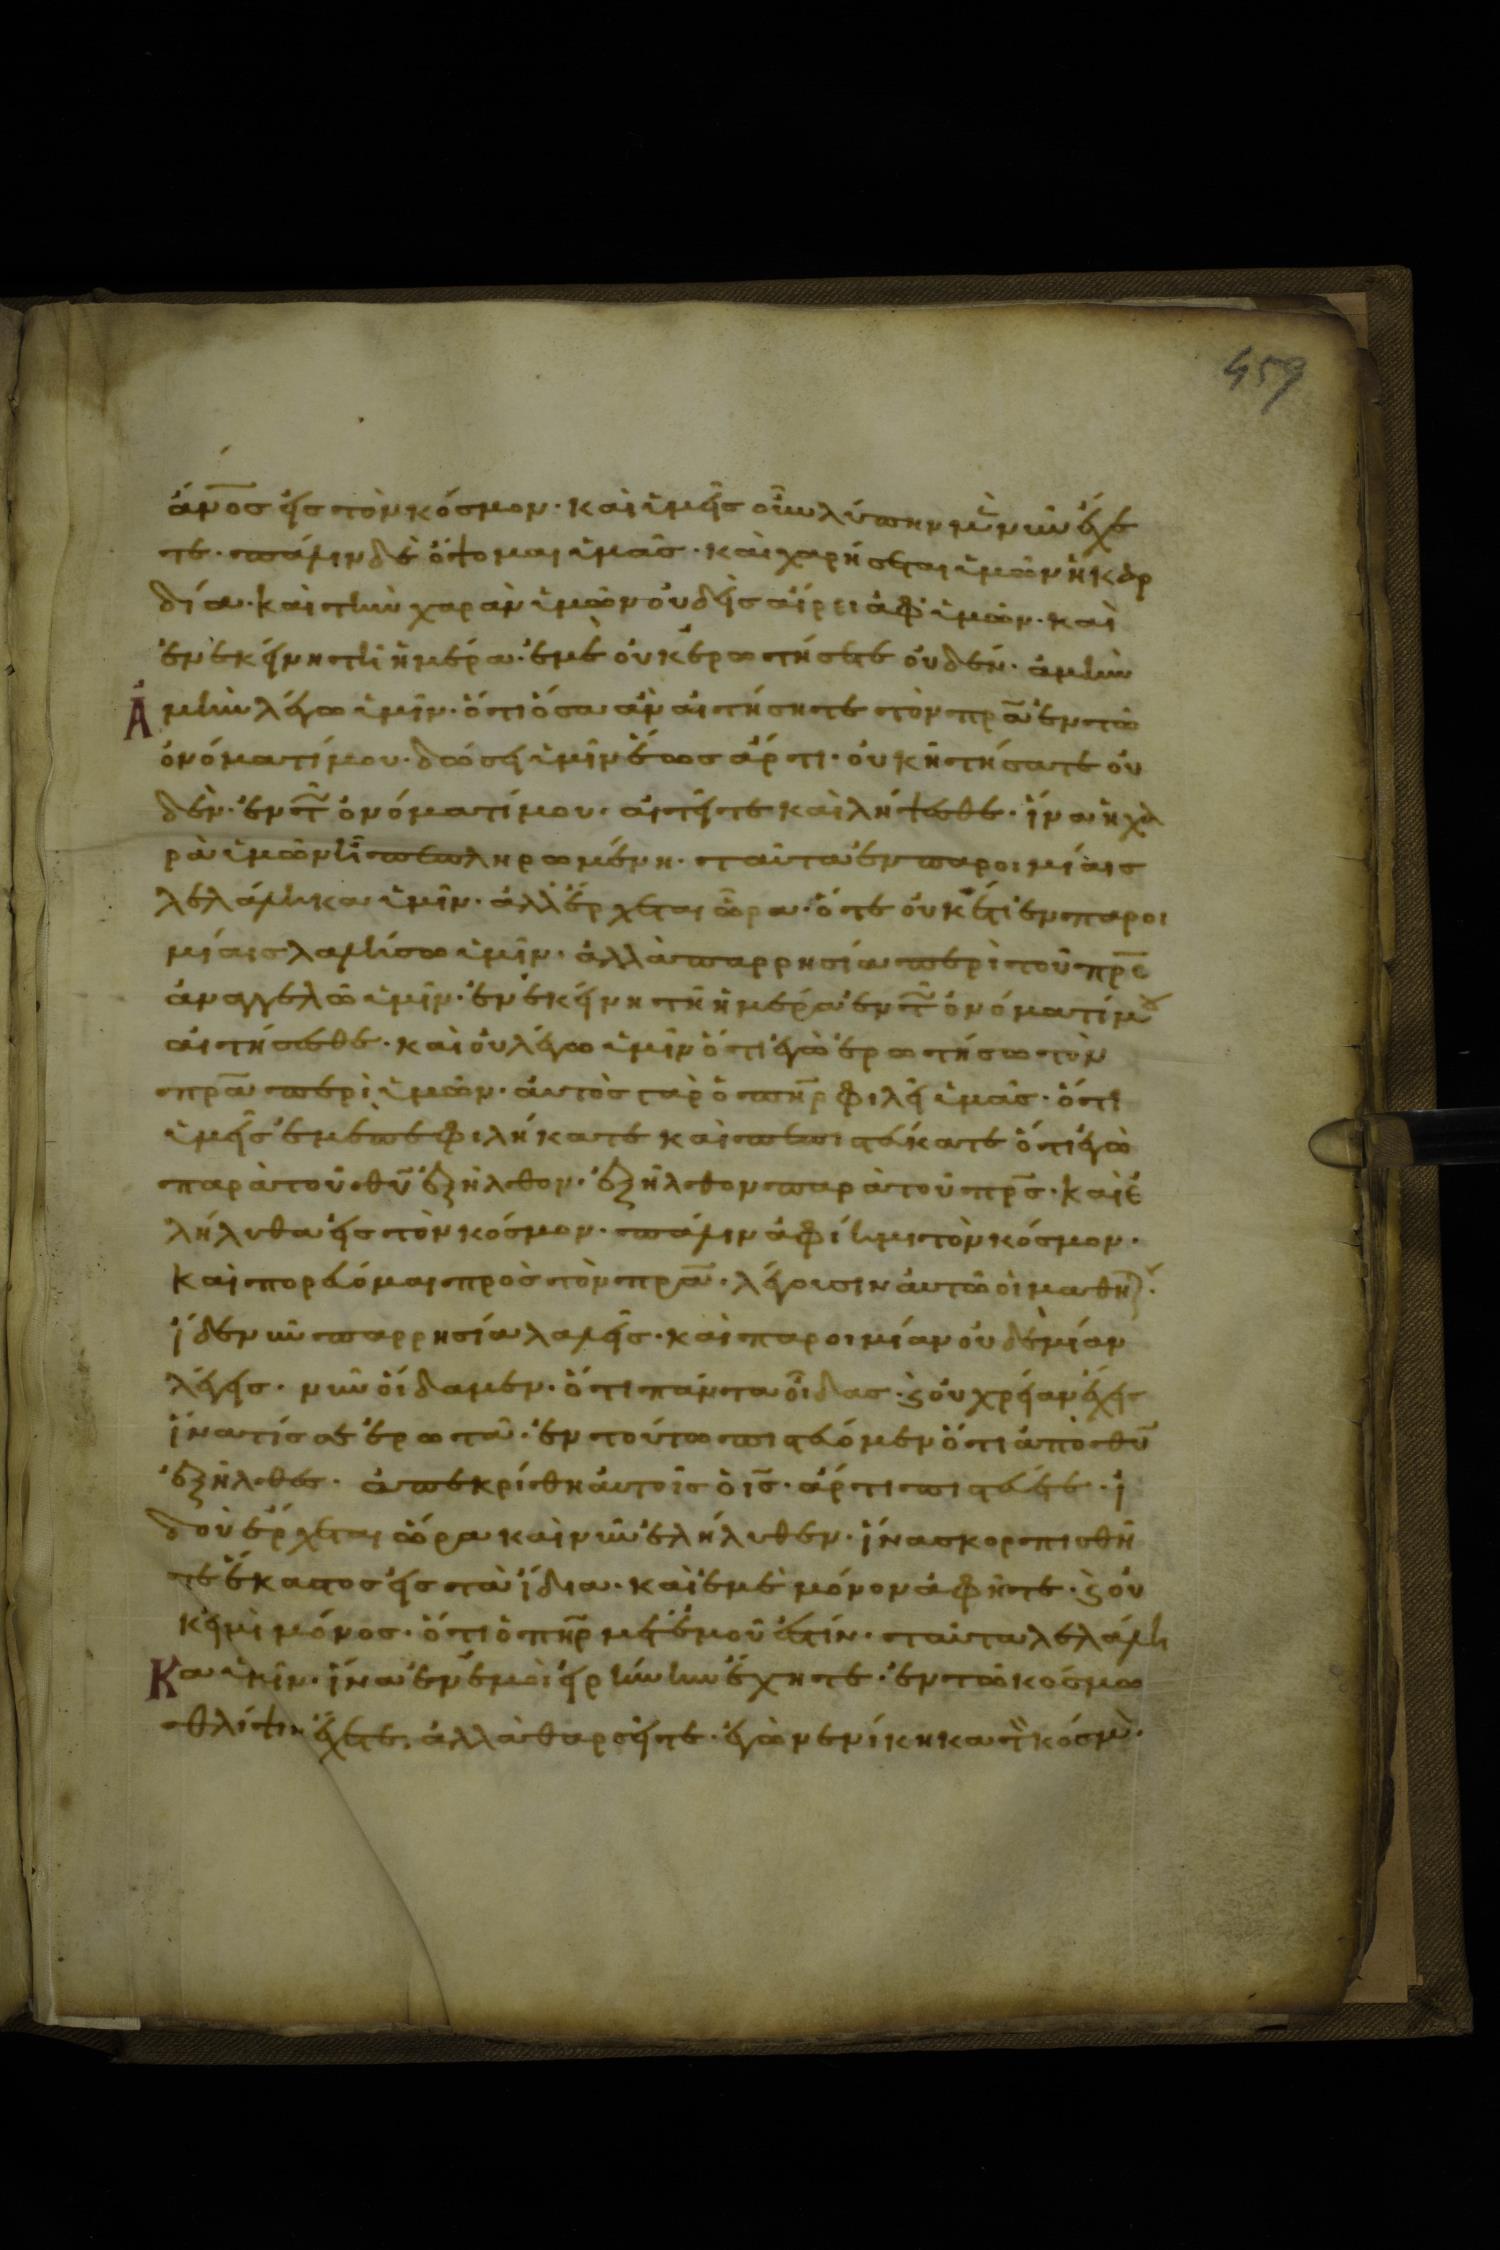 459
ἄν̅ο̅σ εἰς τὸν κόσμον· καὶ ὑμεῖς οὖν λύπην μὲν νῦν ἔχε
τε· πάλιν δὲ ὄψομαι ὑμᾶς· καὶ χαρήσεται ὑμῶν ἡ καρ
δία· καὶ τὴν χαρὰν ὑμῶν οὐδεὶς αἴρει ἀφ' ὑμῶν· καὶ
ἐν ἐκείνη τῆ ἡμέρα· ἐμὲ οὐκ ἐρωτήσετε οὐδέν· ἀμὴν
Ἀμὴν λέγω ὑμῖν· ὅτι ὅσα ἂν αἰτήσητε τὸν π̅ρ̅α̅ ἐν τῶ
ὀνόματί μου· δώσει ὑμῖν ἕως ἄρτι· οὐκ ἠτήσατε οὐ
δὲν· ἐν τῶ ὀνόματί μου· αἰτεῖτε καὶ λήψεσθε· ἵνα ἡ χα
ρὰ ὑμῶν ῆ πεπληρωμένη· ταῦτα ἐν παροιμίαις
λελάληκα ὑμῖν· ἀλλ' ἔρχεται ὥρα· ὅτε οὐκέτι ἐν παροι
μίαις λαλήσω ὑμῖν· ἀλλὰ παρρησία περὶ τοῦ π̅ρ̅ς̅
ἀναγγελῶ ὑμῖν· ἐν ἐκείνη τῆ ἡμέρα ἐν τῶ ὀνόματί μου
αἰτήσεσθε· καὶ οὐ λέγω ὑμῖν ὅτι ἐγὼ ἐρωτήσω τὸν
π̅ρ̅α̅ περὶ ὑμῶν· αὐτὸς γὰρ ὁ π̅η̅ρ̅ φιλεῖ ὑμᾶς· ὅτι
ὑμεῖς ἐμὲ πεφιλήκατε καὶ πεπιστεύκατε ὅτι ἐγὼ
παρὰ τοῦ θ̅υ̅ ἐξῆλθον· ἐξῆλθον παρὰ τοῦ π̅ρ̅ς̅· καὶ ἐ
λήλυθα εἰς τὸν κόσμον· πάλιν ἀφίημι τὸν κόσμον·
καὶ πορεύομαι πρὸς τὸν π̅ρ̅α̅· λέγουσιν αὐτῶ οἱ μαθη·
ἴδε νῦν παρρησία λαλεῖς· καὶ παροιμίαν οὐδεμίαν
λέγεις· νῦν οἴδαμεν· ὅτι πάντα οἶδας· ϗ οὐ χρείαν ἔχεις
ἵνα τίς σε ἐρωτᾶ· ἐν τούτω πιστεύομεν ὅτι ἀπὸ θ̅υ̅
ἐξῆλθες· ἀπεκρίθη αὐτοῖς ὁ ι̅ς̅· ἄρτι πιστεύετε· ἰ
δοὺ ἔρχεται ὥρα καὶ νῦν ἐλήλυθεν· ἵνα σκορπισθῆ
τε ἕκαστος εἰς τὰ ἴδια· καὶ ἐμὲ μόνον ἀφῆτε· ϗ οὐ
κ εἰμὶ μόνος· ὅτι ὁ π̅η̅ρ̅ μετ' ἐμοῦ ἐστίν· ταῦτα λελάλη
Κα ὑμῖν· ἵνα ἐν ἐμοὶ εἰρήνην ἔχητε· ἐν τῶ κόσμω
θλίψιν ἔχετε, ἀλλὰ θαρσεῖτε· ἐγὼ νενίκηκα τὸν κόσμον·